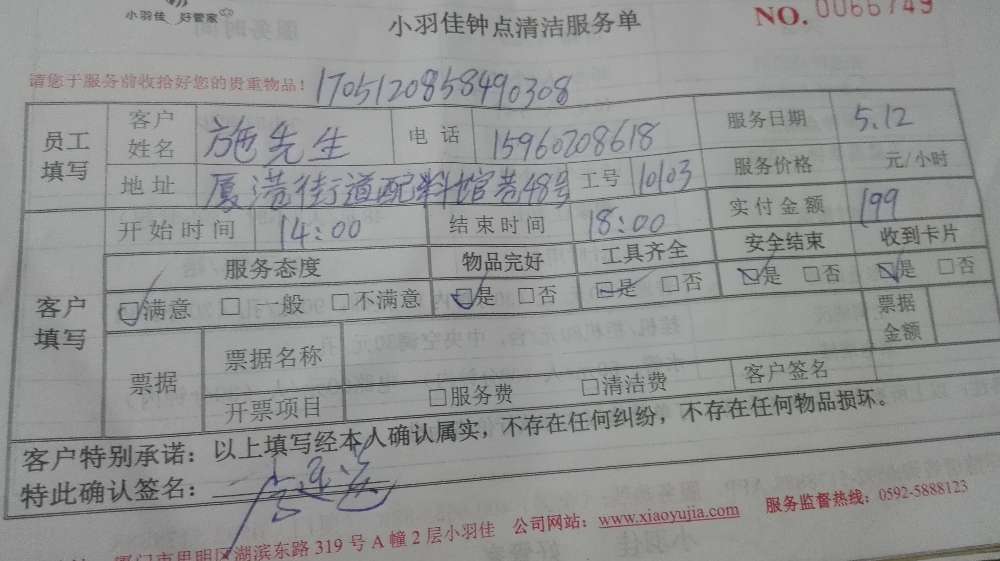 小羽佳 好管家
小羽佳钟点清洁服务单
NO. 0066749
请您于服务前收拾好您的贵重物品！ 1705120858490308
员工填写 客户姓名 施先生 电话 15960208618 服务日期 5.12
地址 厦港街道配料馆巷48号 工号 10103 服务价格 元/小时
客户填写 开始时间 14:00 结束时间 18:00 实付金额 199
服务态度 物品完好 工具齐全 安全结束 收到卡片
☑满意 □一般 □不满意 ☑是 □否 ☑是 □否 ☑是 □否 ☑是 □否
票据 票据名称 票据金额
开票项目 □服务费 □清洁费 客户签名
客户特别承诺：以上填写经本人确认属实，不存在任何纠纷，不存在任何物品损坏。
特此确认签名：
厦门市思明区湖滨东路319号A幢2层小羽佳 公司网站：www.xiaoyujia.com 服务监督热线：0592-5888123